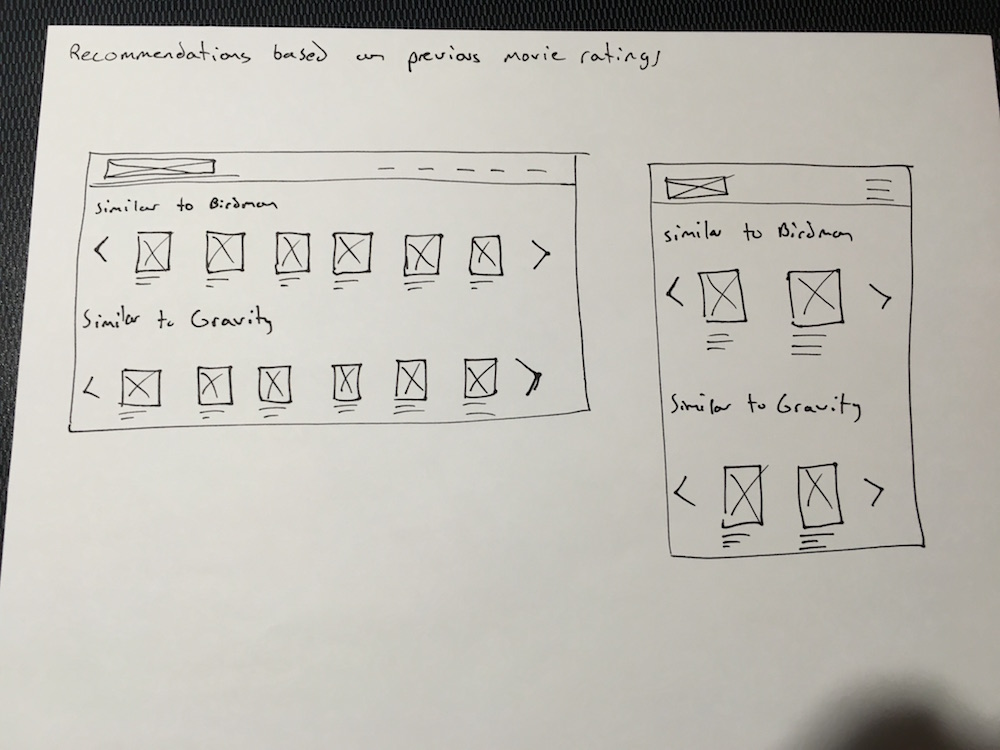 Recommendations based on previous movie ratings
Similar to Birdman
Similar to Gravity
similar to Birdman
Similar to Gravity